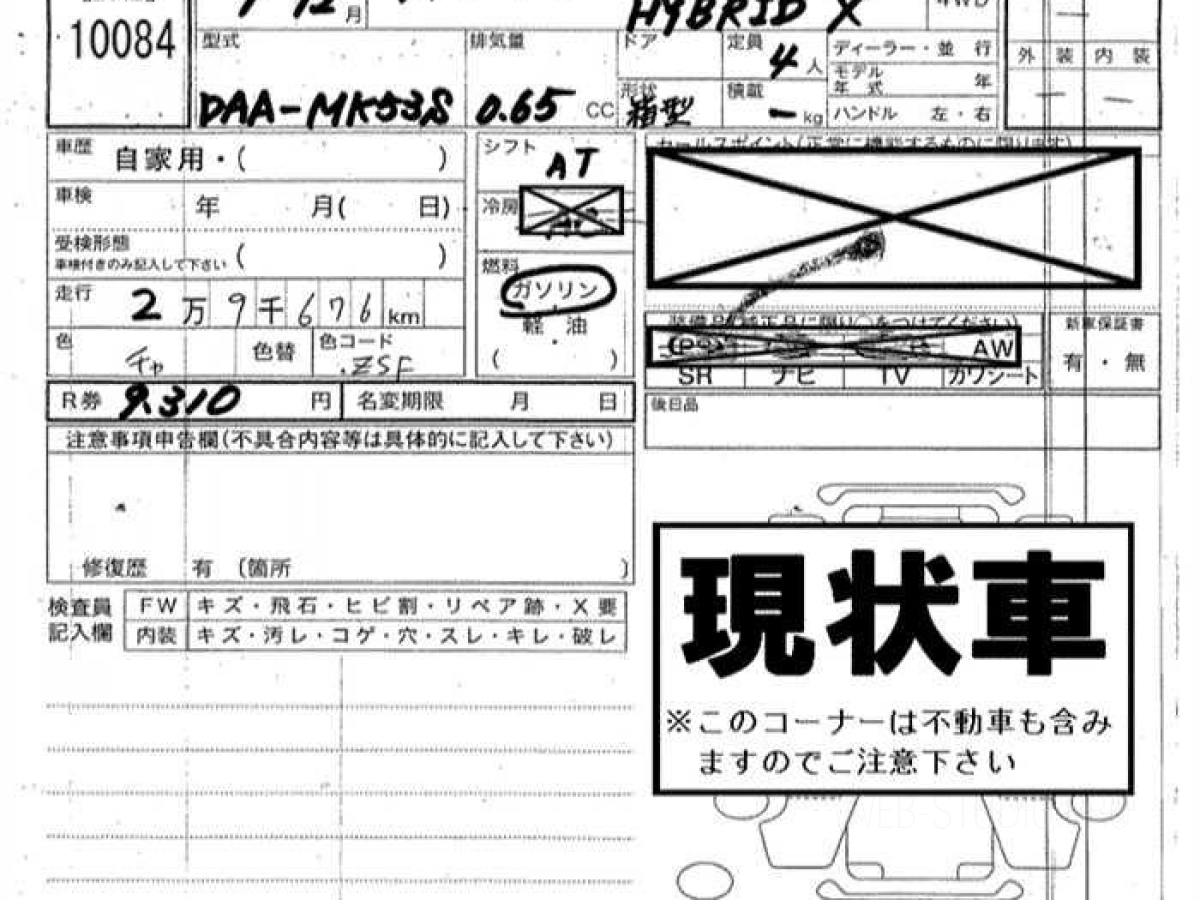 10084
月
HYBRID X
4WD
型式
DAA-MK53S
排気量
0.65 CC
ドア
形状
箱型
定員
4人
積載
- kg
ディーラー・並行
モデル年式 年
ハンドル 左・右
外装 内装
車歴 自家用・( )
車検 年 月( 日)
受検形態
車検付きのみ記入して下さい ( )
走行 2万9千676km
色 チャ 色替 色コード ZSF
シフト AT
冷房
燃料
ガソリン
・
軽油
・
( )
セールスポイント(正常に機能するものに限ります)
装備品(純正品に限り○をつけてください)
PS AW
SR ナビ TV カワシート
新車保証書
有・無
後日品
R券 9.310 円 名変期限 月 日
注意事項申告欄(不具合内容等は具体的に記入して下さい)
修復歴 有 (箇所 )
検査員記入欄
FW キズ・飛石・ヒビ割・リペア跡・X要
内装 キズ・汚レ・コゲ・穴・スレ・キレ・破レ
現状車
※このコーナーは不動車も含み
ますのでご注意下さい